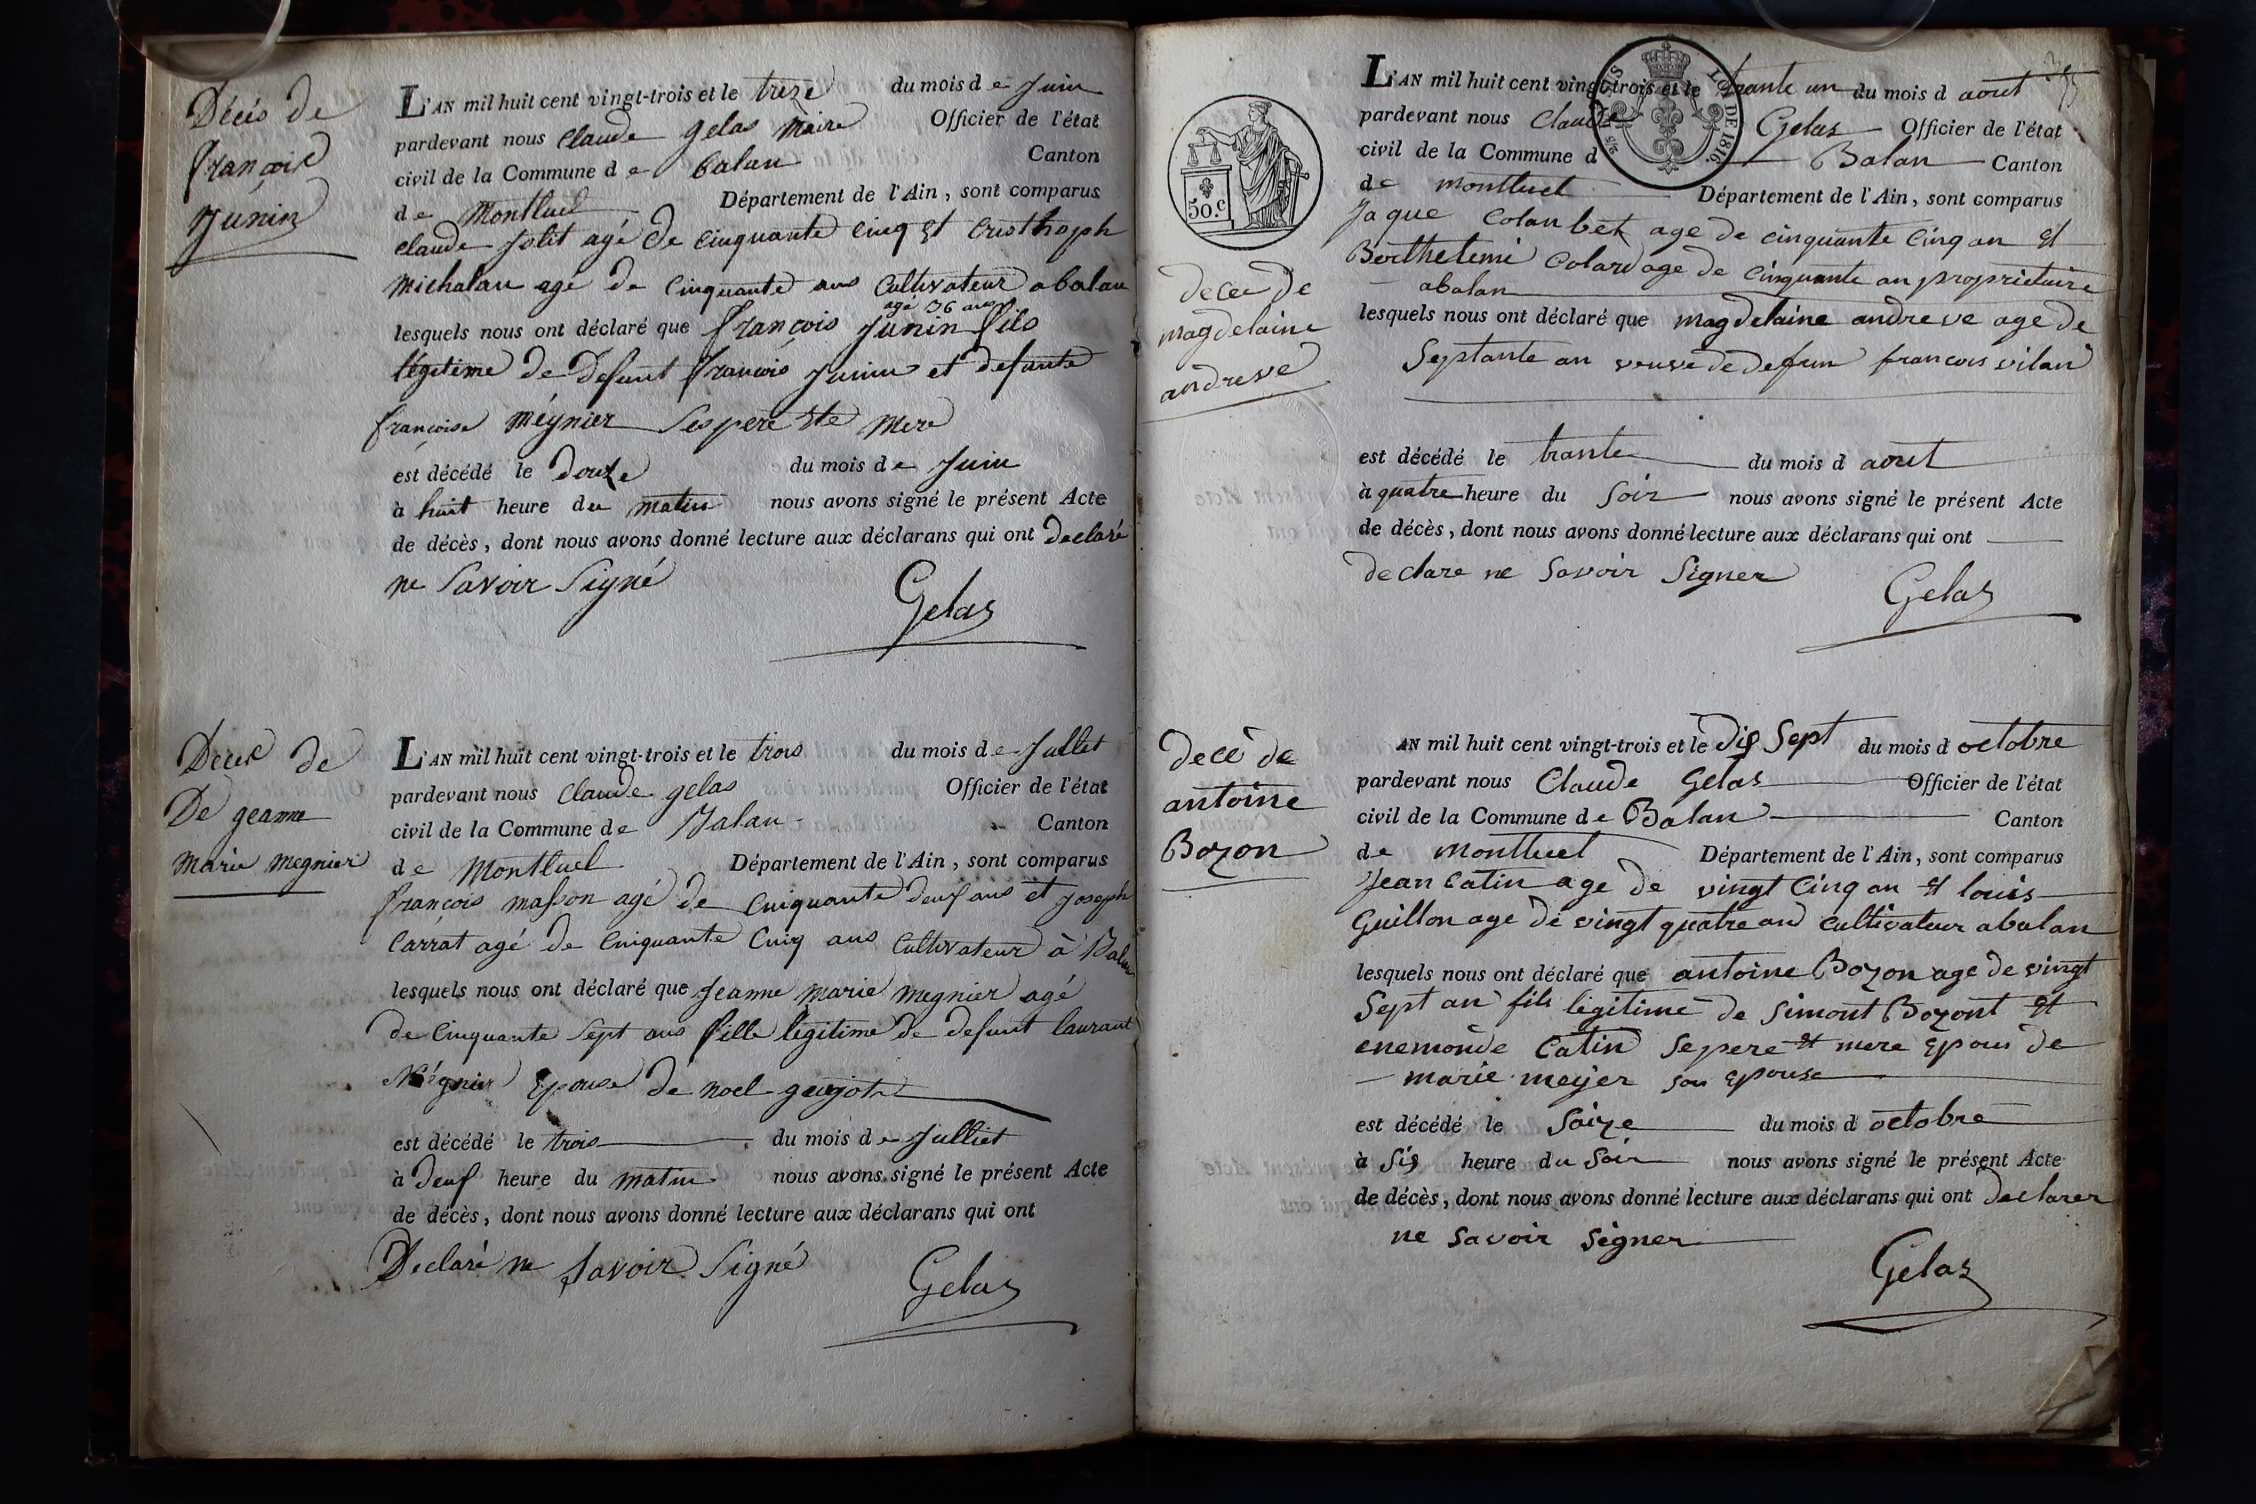 Décés de
françois
Junin
L'AN mil huit cent vingt-trois et le treze du mois de Juin
pardevant nous claude gelas maire Officier de l'état
civil de la Commune de balan Canton
de Montluel Département de l'Ain, sont comparus
claude Jolit agé de cinquante cinq et cristhoph
michalan agé de cinquante ans cultivateur a balan
agé 36 ans
lesquels nous ont déclaré que françois Junin fils
légitime de defunt françois Junin et defunte
françoise mégnier ses pere et mere
est décédé le douze du mois de Juin
à huit heure du matin nous avons signé le présent Acte
de décès, dont nous avons donné lecture aux déclarans qui ont declaré
ne savoir signé
Gelas
Deces de
De geanne
marie megnier
L'AN mil huit cent vingt-trois et le trois du mois de Jullet
pardevant nous claude gelas Officier de l'état
civil de la Commune de Balan Canton
de Montluel Département de l'Ain, sont comparus
françois masson agé de cinquante deuf ans et joseph
carrat agé de cinquante cinq ans cultivateur à Balan
lesquels nous ont déclaré que Jeanne marie megnier agé
de cinquante sept ans fille légitime de defunt laurant
Mégnier epouse de noel guyot
est décédé le trois du mois de Julliet
à deuf heure du matin nous avons signé le présent Acte
de décès, dont nous avons donné lecture aux déclarans qui ont
Declaré ne savoir signé
Gelas
50.c
LOI DE 1816.
decee de
magdelaine
andreve
L'AN mil huit cent vingt-trois et le trante un du mois d aout
pardevant nous Claude Gelas Officier de l'état
civil de la Commune d Balan Canton
de montluel Département de l'Ain, sont comparus
Jaque Colanbet age de cinquante cinq an et
Berthelemi Colard age de cinquante an proprietaire
abalan
lesquels nous ont déclaré que magdelaine andreve age de
septante an veuve de defun francois vilan
est décédé le trante du mois d aout
à quatre heure du soir nous avons signé le présent Acte
de décès, dont nous avons donné lecture aux déclarans qui ont
declare ne savoir signer
Gelas
decé de
antoine
Bozon
AN mil huit cent vingt-trois et le dis sept du mois d octobre
pardevant nous Claude Gelas Officier de l'état
civil de la Commune de Balan Canton
de montluel Département de l'Ain, sont comparus
Jean Catin age de vingt cinq an et louis
Guillon age de vingt quatre and cultivateur abalan
lesquels nous ont déclaré que antoine Bozon age de vingt
sept an fils legitime de simont Bozont et
enemonde Catin se pere et mere epous de
marie meyer son epouse
est décédé le saize du mois d octobre
à sis heure du soir nous avons signé le présent Acte
de décès, dont nous avons donné lecture aux déclarans qui ont declarer
ne savoir signer
Gelas